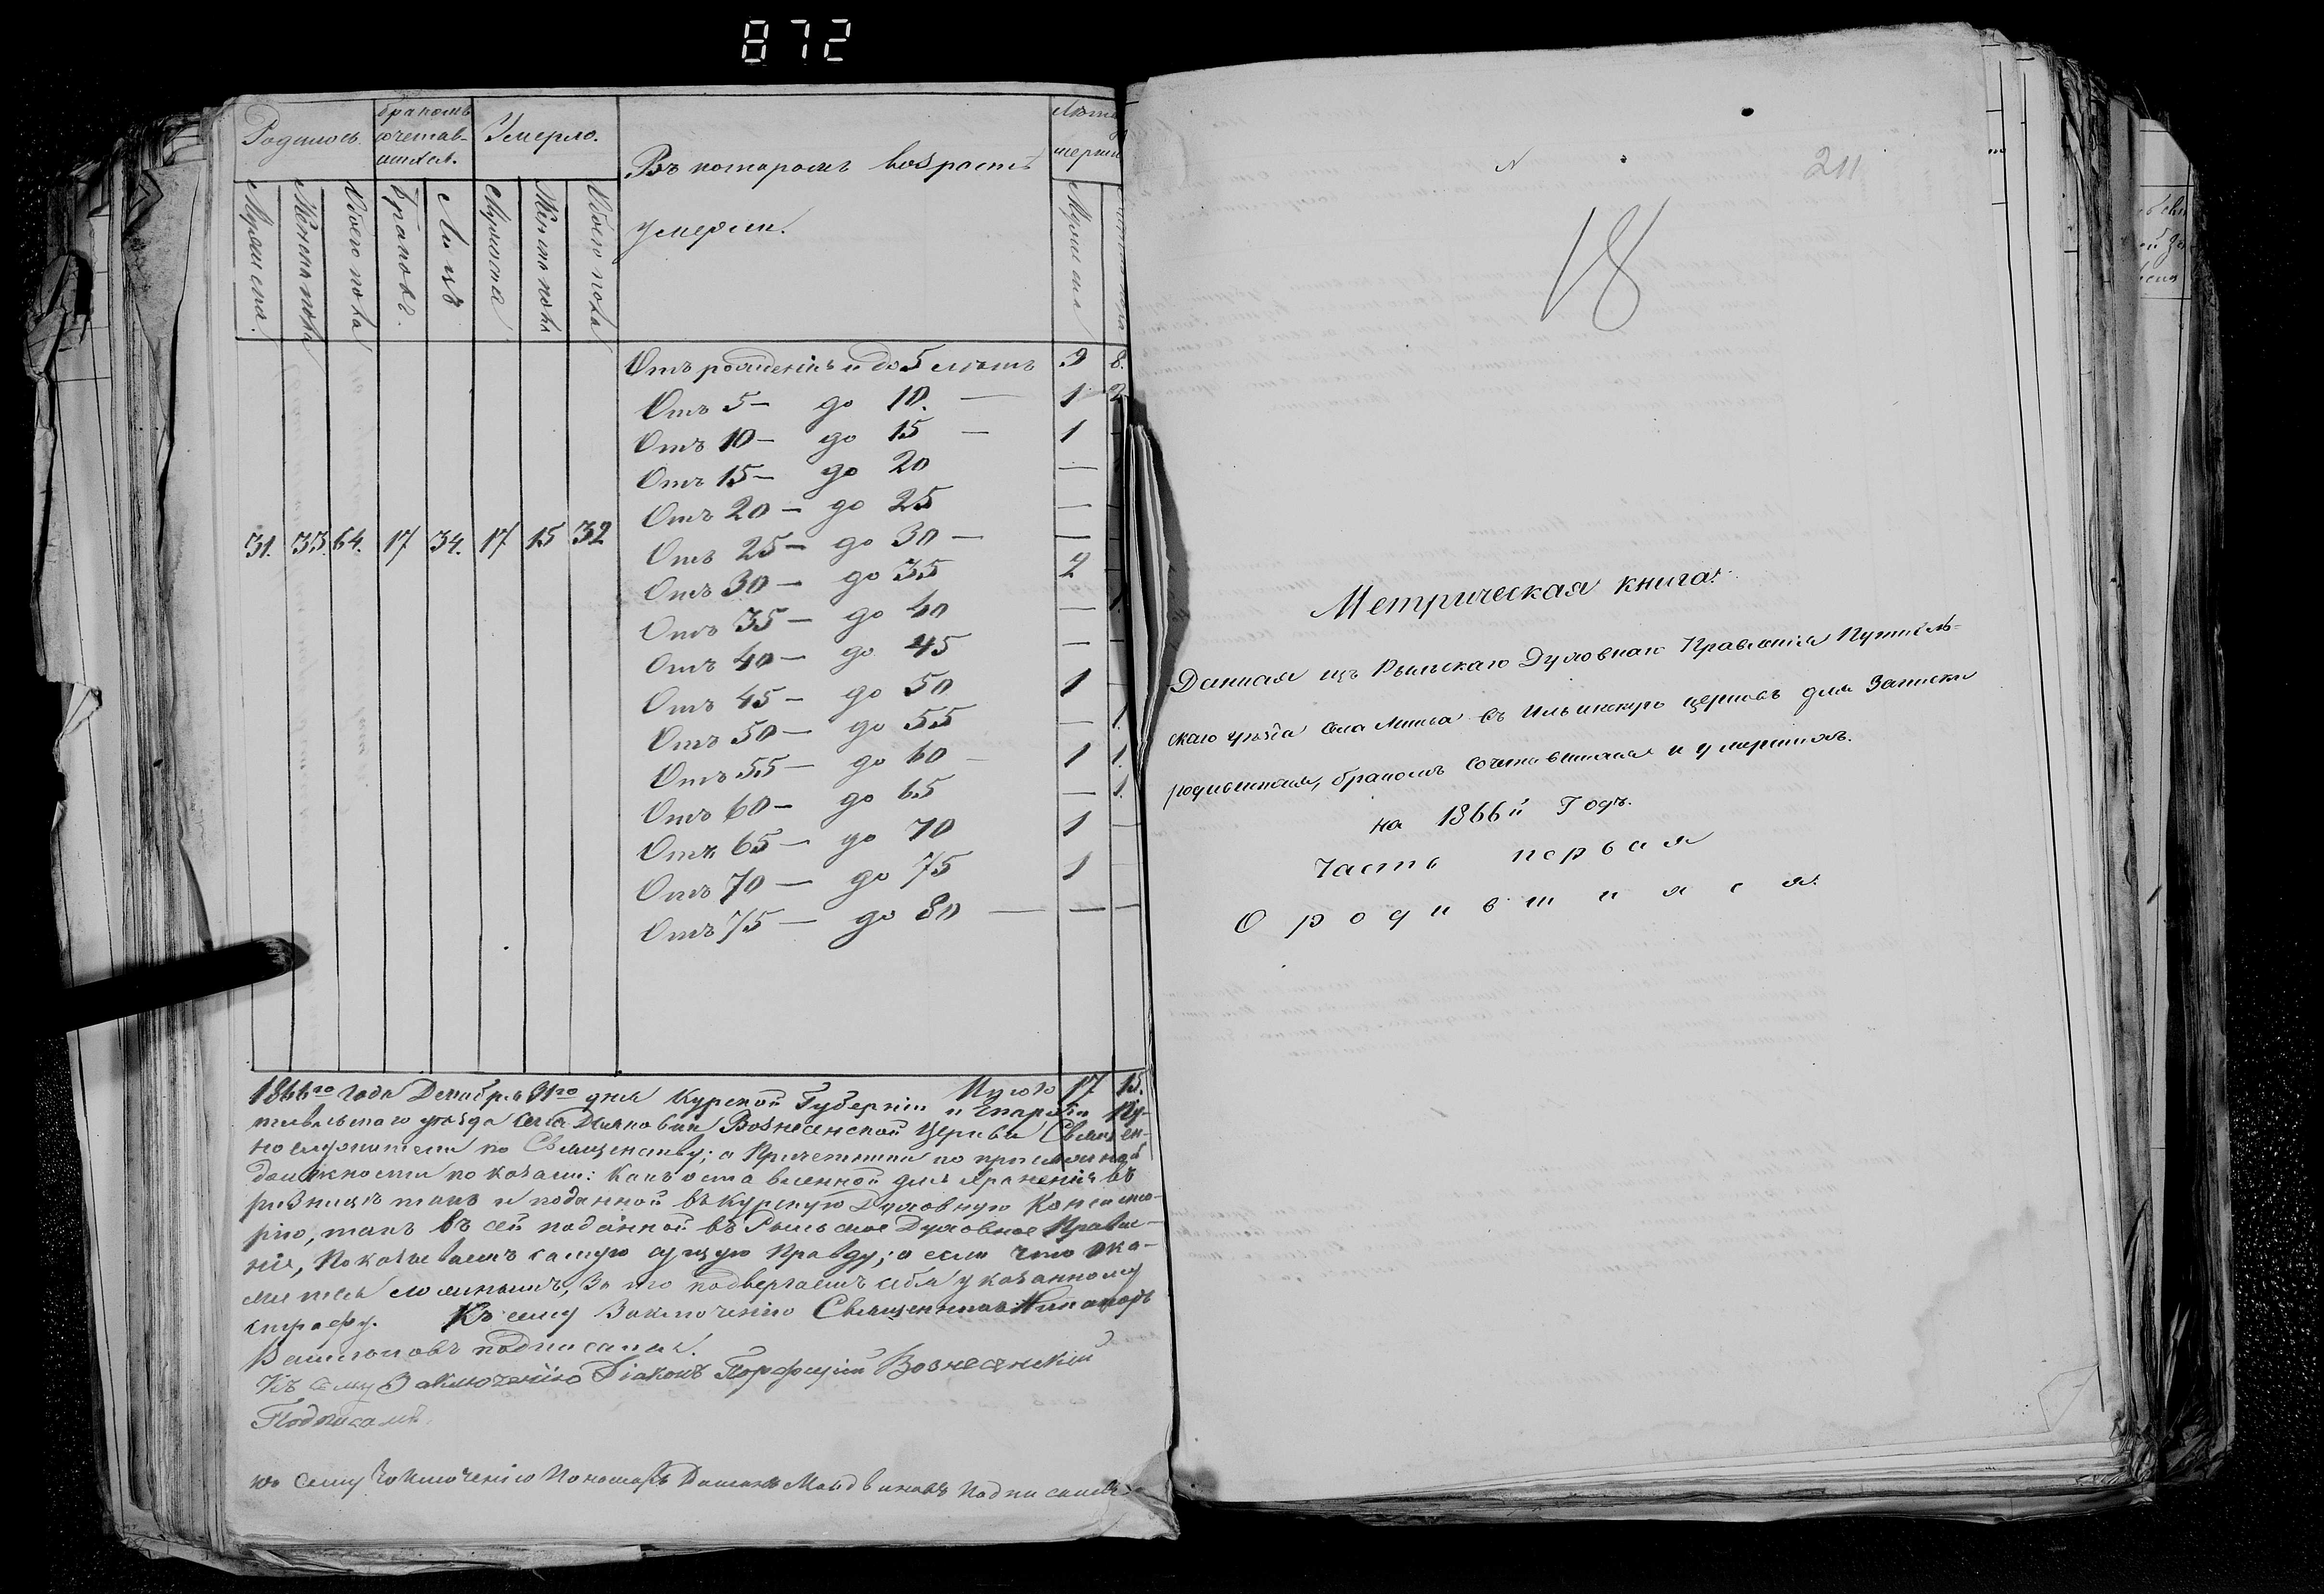 872
Родилось.
бракомъ
сочетав-
шихся.
Умерло.
Въ которомъ возрастѣ
умерли.
Мужска.
Женска пола
Обоего пола
Браковъ.
Лицъ
Мужска
Женска пола
Обоего пола
Мужска
Отъ рожденія и до 5 лѣтъ 9 8.
Отъ 5 — до 10. — 1 2
Отъ 10 — до 15 — 1
Отъ 15 — до 20 —
Отъ 20 — до 25 —
Отъ 25 — до 30 — —
31. 33. 64. 17 34. 17 15 32
Отъ 30 — до 35 2
Отъ 35 — до 40 —
Отъ 40 — до 45 —
Отъ 45 — до 50 1
Отъ 50 — до 55 — 1.
Отъ 55 — до 60 — 1 1.
Отъ 60 — до 65 — 1.
Отъ 65 — до 70 1 —
Отъ 70 — до 75 1
Отъ 75 — до 80 — — —
Итого 17 15.
1866го года Декабря 31го дня Курской Губерніи и Епархіи Пу-
тивльскаго уѣзда села Вознесенской Церкви Священ-
нослужители по Священству; а Причетники по присяжной
должности показали: какъ оставленной для храненія въ
ризницѣ такъ и поданной въ Курскую Духовную Консисто-
рію, такъ въ сей поданной въ Рыльское Духовное Правле-
ніе, показываемъ самую сущую правду; а если что ока-
жется ложнымъ, за то подвергаемъ себя указанному
штрафу. Къ сему Заключенію Священникъ Никаноръ
подписался.
Къ сему Заключенію Діаконъ Порфирій Вознесенскій
Подписалъ.
къ сему Заключенію Пономарь подписалъ
211
18
Метрическая книга.
Данная изъ Рыльскаго Духовнаго Правленія Путивль-
скаго уѣзда села въ Ильинскую церковь для записки
родившихся, бракомъ сочетавшихся и умершихъ.
на 1866й Годъ.
Часть первая
О родившихся.